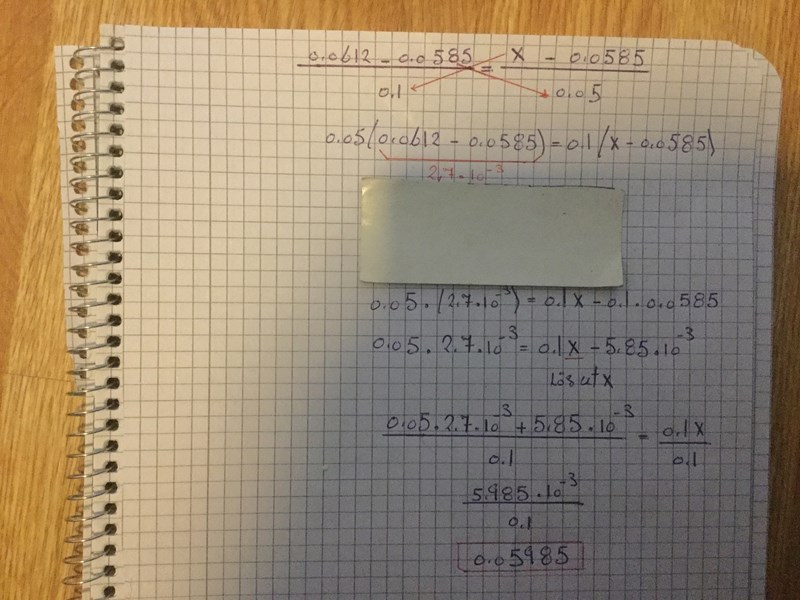 0.0612 - 0.0585 / 0.1 = x - 0.0585 / 0.05
0.05(0.0612 - 0.0585) = 0.1(x - 0.0585)
2.7·10⁻³
0.05·(2.7·10⁻³) = 0.1x - 0.1·0.0585
0.05·2.7·10⁻³ = 0.1x - 5.85·10⁻³
Lös ut x
0.05·2.7·10⁻³ + 5.85·10⁻³ / 0.1 = 0.1x / 0.1
5.985·10⁻³ / 0.1
0.05985